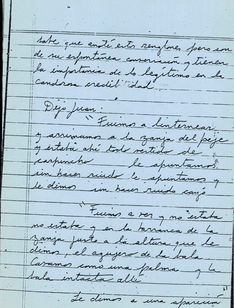 sabe que anoté estos renglones, pero son
de su espontánea conversación y tienen
la importancia de lo legítimo en la
candorosa credibilidad.
Dijo Juan:
"Fuimos a linternear
y arrimamos a la zanja del peje
y estaba ahí todo vestido de
carpincho le apuntamos
sin hacer ruido le apuntamos y
le dimos sin hacer ruido cayó
"Fuimos a ver y no estaba
no estaba y en la barranca de la
zanja justo a la altura que le
dimos, el agujero de la bala
Cavamos como una palma y la
bala intacta allí
Le dimos a una aparición